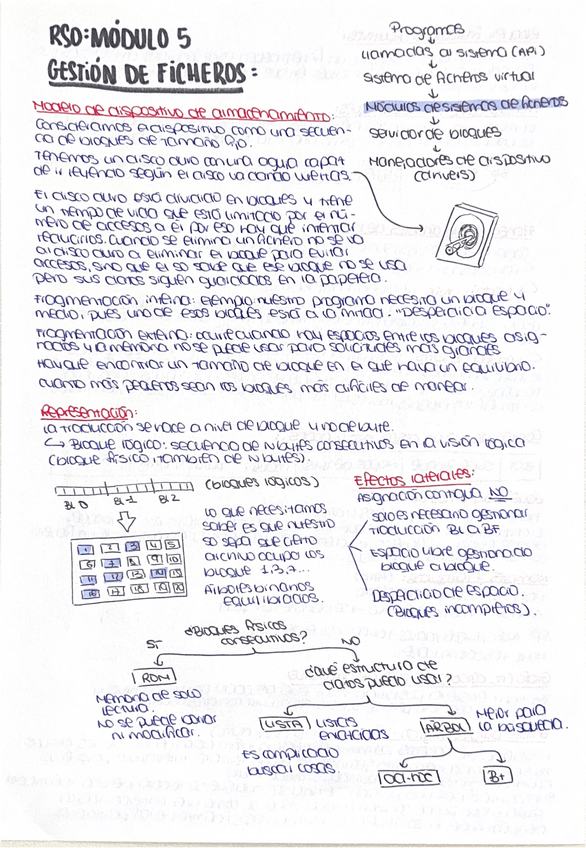 RSO: MÓDULO 5
GESTIÓN DE FICHEROS:
Programas
llamadas al sistema (API)
sistema de ficheros virtual
Módulos de sistemas de ficheros
servidor de bloques
Manejadores de dispositivo
(drivers)
Modelo de dispositivo de almacenamiento:
Consideramos el dispositivo como una secuen-
cia de bloques de tamaño fijo.
Tenemos un disco duro con una aguja capaz
de ir leyendo según el disco va dando vueltas.
El disco duro está dividido en bloques y tiene
un tiempo de vida que está limitado por el nú-
mero de accesos a él por eso hay que intentar
reducirlos. Cuando se elimina un fichero no se va
al disco duro a eliminar el bloque para evitar
accesos, sino que el so sabe que ese bloque no se usa
pero sus datos siguen guardados en la papelera.
Fragmentación interna: ejemplo: nuestro programa necesita un bloque y
medio, pues uno de esos bloques está a la mitad. "Desperdicia espacio".
Fragmentación externa: ocurre cuando hay espacios entre los bloques asig-
nados y la memoria no se puede usar para solicitudes más grandes
Hay que encontrar un tamaño de bloque en el que haya un equilibrio.
cuanto más pequeños sean los bloques, más difíciles de manejar.
Representación:
la traducción se hace a nivel de bloque y no de byte.
↳ Bloque lógico: secuencia de N bytes consecutivos en la visión lógica
(bloque físico: también de N bytes).
(bloques lógicos)
BL 0 BL 1 BL 2
1 2 3 4 5
6 7 8 9 10
11 12 13 14 15
16 17 18 19 20
lo que necesitamos
saber es que nuestro
so sepa que cierto
archivo ocupó los
bloque 1,3,7...
Árboles binarios
equilibrados.
Efectos laterales:
Asignación contigua NO
sólo es necesario gestionar
traducción BL a BF
Espacio libre gestionado
bloque a bloque.
Desperdicio de espacio.
(Bloques incompletos).
¿Bloques físicos
consecutivos?
SÍ
NO
ROM
Memoria de solo
lectura.
No se puede borrar
ni modificar.
¿qué estructura de
datos puedo usar?
LISTA
listas
enlazadas
Es complicado
buscar cosas.
ÁRBOL
Mejor para
la búsqueda.
B+